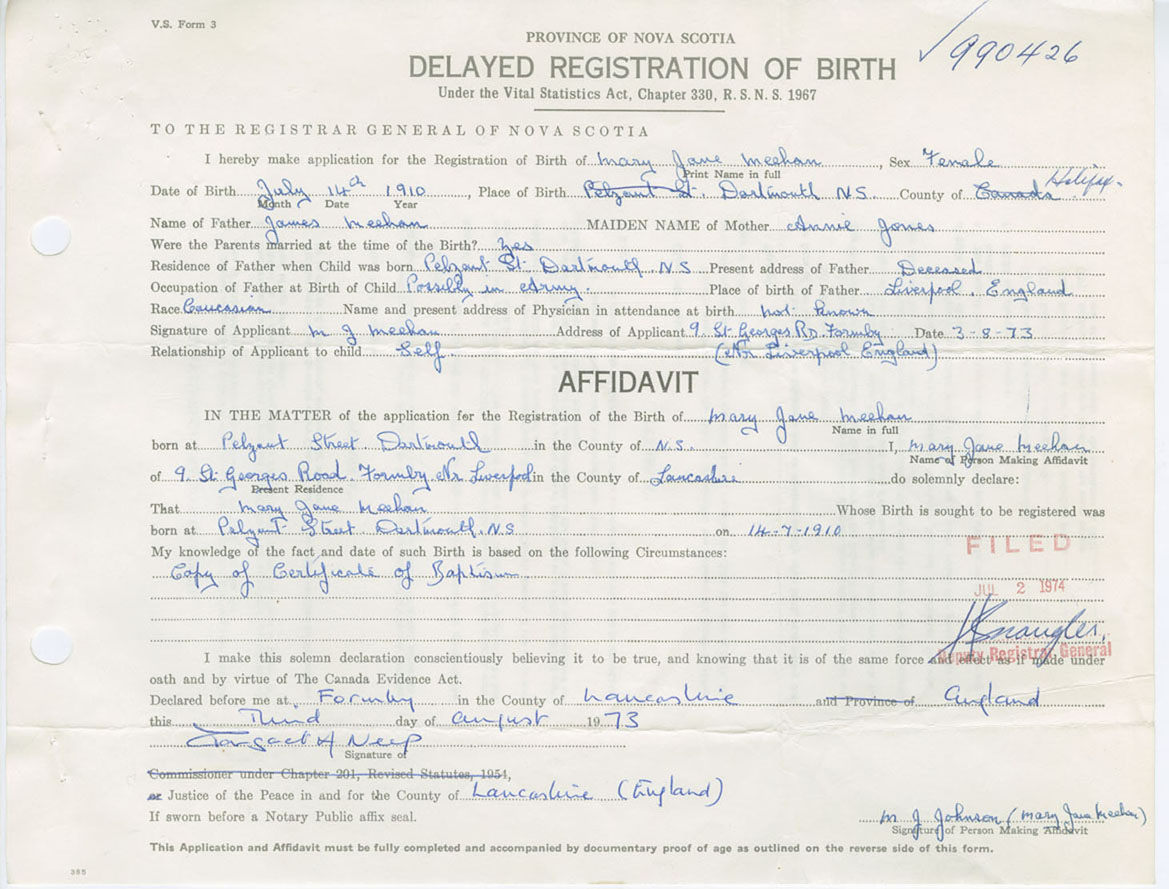 V.S. Form 3
990426
PROVINCE OF NOVA SCOTIA
DELAYED REGISTRATION OF BIRTH
Under the Vital Statistics Act, Chapter 330, R. S. N. S. 1967
TO THE REGISTRAR GENERAL OF NOVA SCOTIA
I hereby make application for the Registration of Birth of Mary Jane Meehan, Sex Female
Print Name in full
Halifax.
Date of Birth July 14th 1910, Place of Birth Pelzant St. Dartmouth NS County of Canada
Month Date Year
Name of Father James Meehan MAIDEN NAME of Mother Annie Jones
Were the Parents married at the time of the Birth? Yes
Residence of Father when Child was born Pelzant St. Dartmouth. NS Present address of Father Deceased
Occupation of Father at Birth of Child Possibly in Army. Place of birth of Father Liverpool, England
Race Caucasian Name and present address of Physician in attendance at birth not known
Signature of Applicant M J Meehan Address of Applicant 9 St Georges RD. Formby Date 3-8-73
Relationship of Applicant to child Self. (Nr Liverpool England)
AFFIDAVIT
IN THE MATTER of the application for the Registration of the Birth of Mary Jane Meehan
Name in full
born at Pelzant Street Dartmouth in the County of N.S. I, Mary Jane Meehan
Name of Person Making Affidavit
of 9 St Georges Road Formby Nr Liverpool in the County of Lancashire do solemnly declare:
Present Residence
That Mary Jane Meehan Whose Birth is sought to be registered was
born at Pelzant Street Dartmouth, NS on 14-7-1910
My knowledge of the fact and date of such Birth is based on the following Circumstances:
FILED
Copy of Certificate of Baptism
JUL 2 1974
Deputy Registrar General
I make this solemn declaration conscientiously believing it to be true, and knowing that it is of the same force and effect as if made under
oath and by virtue of The Canada Evidence Act.
Declared before me at Formby in the County of Lancashire and Province of England
this Third day of August 1973
Neep
Signature of
Commissioner under Chapter 201, Revised Statutes, 1954,
or Justice of the Peace in and for the County of Lancashire (England)
If sworn before a Notary Public affix seal.
M J Johnson (Mary Jane Meehan)
Signature of Person Making Affidavit
This Application and Affidavit must be fully completed and accompanied by documentary proof of age as outlined on the reverse side of this form.
385